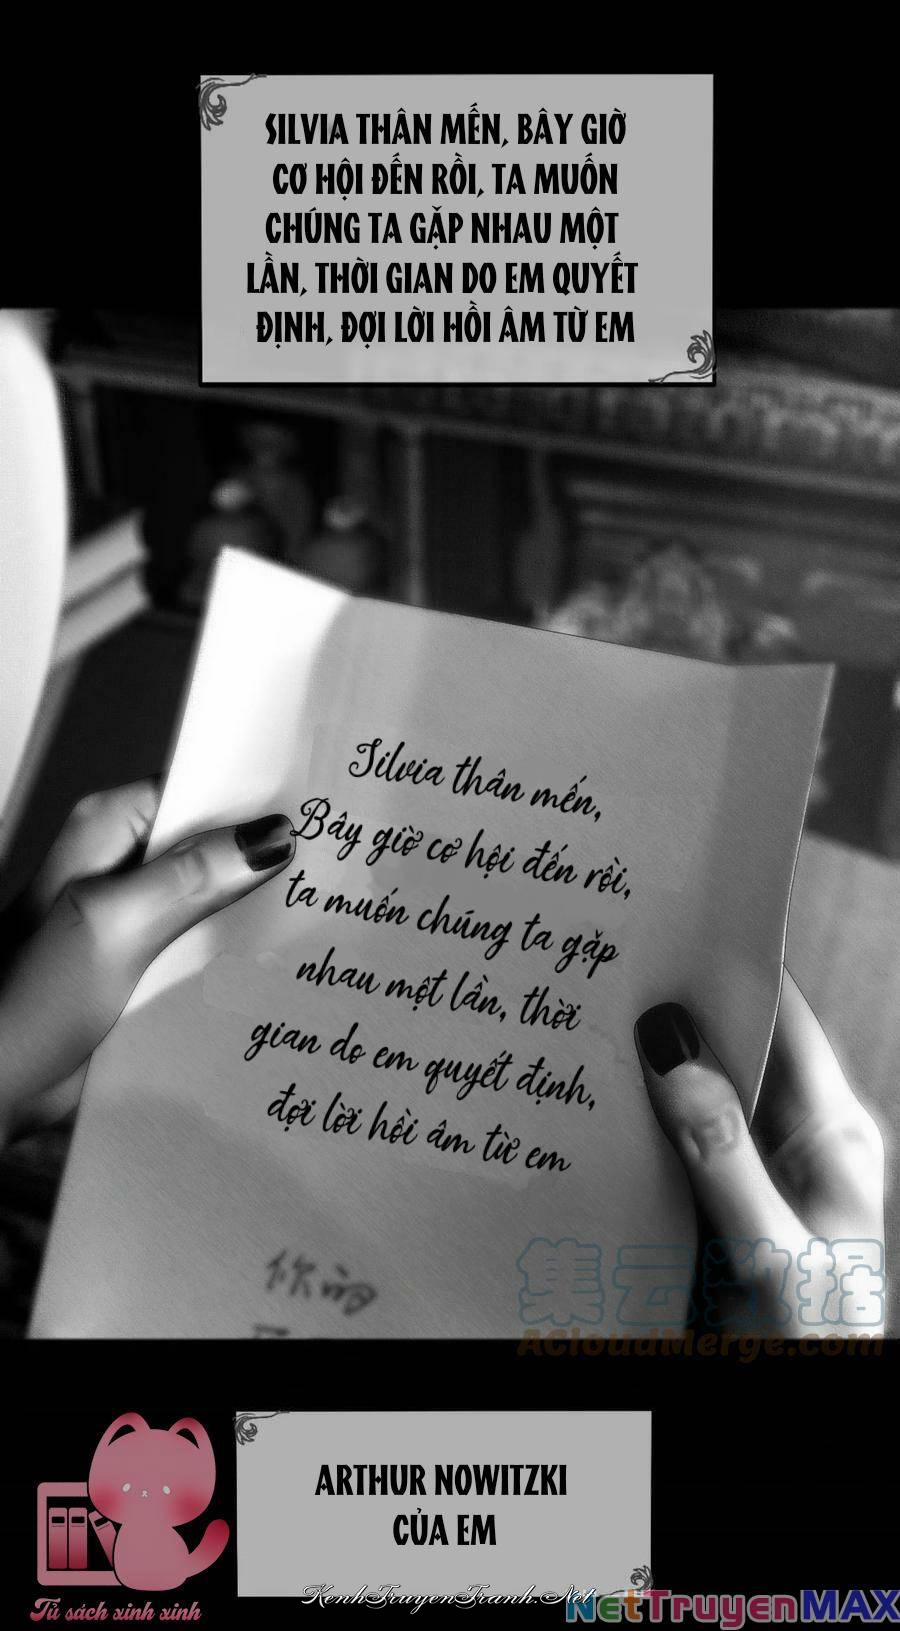 SILVIA THÂN MẾN, BÂY GIỜ
CƠ HỘI ĐẾN RỒI, TA MUỐN
CHÚNG TA GẶP NHAU MỘT
LẦN, THỜI GIAN DO EM QUYẾT
ĐỊNH, ĐỢI LỜI HỒI ÂM TỪ EM
Silvia thân mến,
Bây giờ cơ hội đến rồi,
ta muốn chúng ta gặp
nhau một lần, thời
gian do em quyết định,
đợi lời hồi âm từ em
你的
集云数据
ACloudMerge.com
ARTHUR NOWITZKI
CỦA EM
Tủ sách xinh xinh
KenhTruyenTranh.Net
NetTruyenMAX